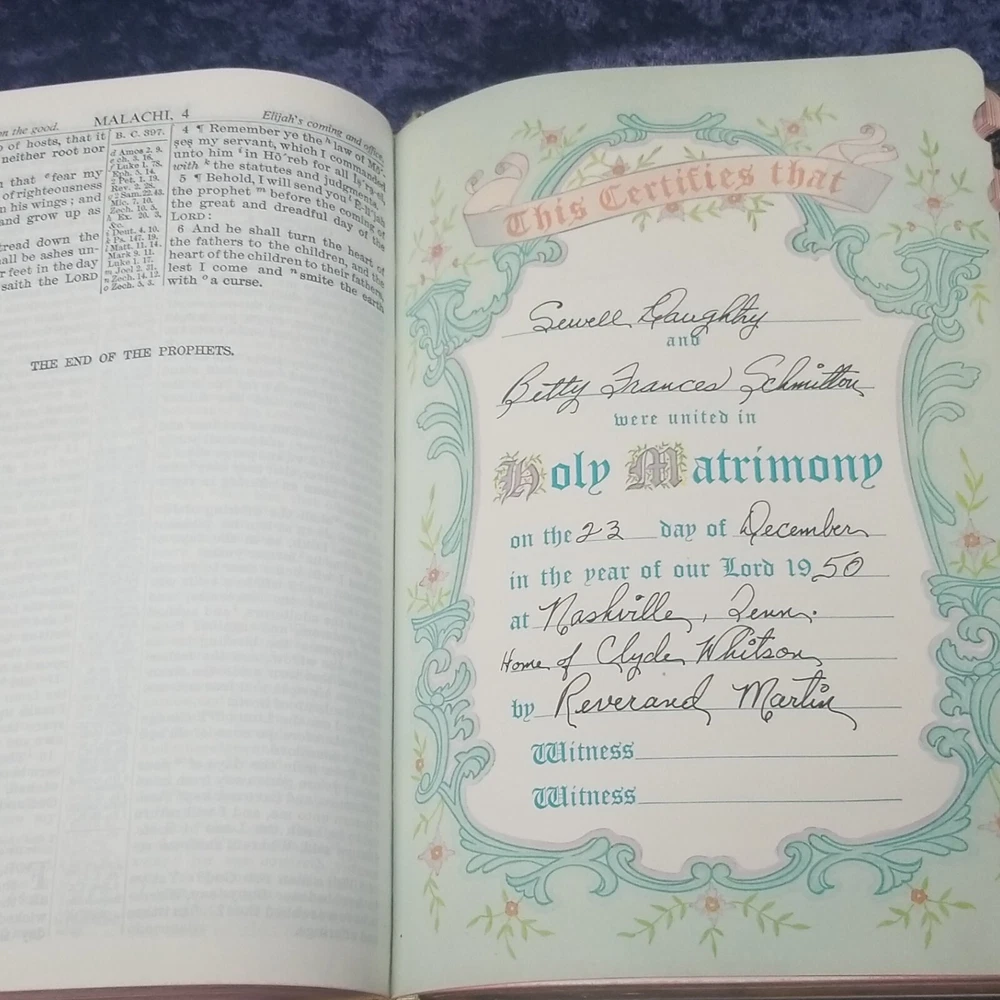 MALACHI, 4
on the good.
Elijah's coming and office.
of hosts, that it
neither root nor
that fear my
of righteousness
his wings; and
and grow up as
tread down the
all be ashes un-
feet in the day
saith the LORD
B. C. 397.
d Amos 2. 9.
e ch. 3. 16.
f Luke 1. 78.
Eph. 5. 14.
2 Pet. 1. 19.
Rev. 2. 28.
g 2 Sam. 22. 43.
Mic. 7. 10.
Zech. 10. 5.
h Ex. 20. 3,
&c.
i Deut. 4. 10.
k Ps. 147. 19.
l Matt. 11. 14.
Mark 9. 11.
Luke 1. 17.
m Joel 2. 31.
n Zech. 14. 12.
o Zech. 5. 3.
4 ¶ Remember ye the h law of Mo-
ses my servant, which I commanded
unto him i in Hō´reb for all Is´ra-el,
with k the statutes and judgments.
5 ¶ Behold, I will send you l E-li´jah
the prophet m before the coming of
the great and dreadful day of the
LORD:
6 And he shall turn the heart of
the fathers to the children, and the
heart of the children to their fathers,
lest I come and n smite the earth
with o a curse.
THE END OF THE PROPHETS.
This Certifies that
Sewell Daughtry
and
Betty Frances Schmittou
were united in
Holy Matrimony
on the 23 day of December
in the year of our Lord 1950
at Nashville, Tenn.
Home of Clyde Whitson
by Reverand Martin
Witness
Witness